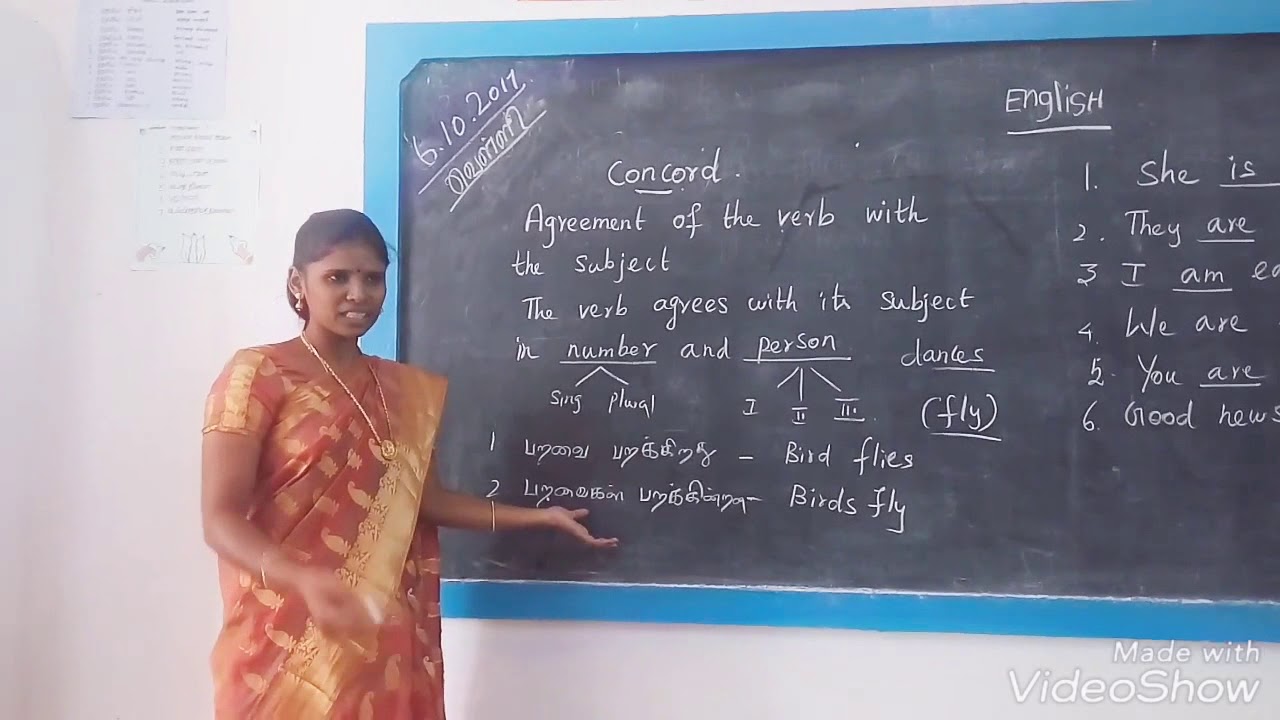 6.10.2017
வெள்ளி
English
Concord.
Agreement of the verb with
the subject
The verb agrees with its subject
in number and person dances
sing plural I II III. (fly)
1 பறவை பறக்கிறது - Bird flies
2 பறவைகள் பறக்கின்றன - Birds fly
1. She is
2. They are
3 I am
4. We are
5. You are
6. Good news
Made with
VideoShow